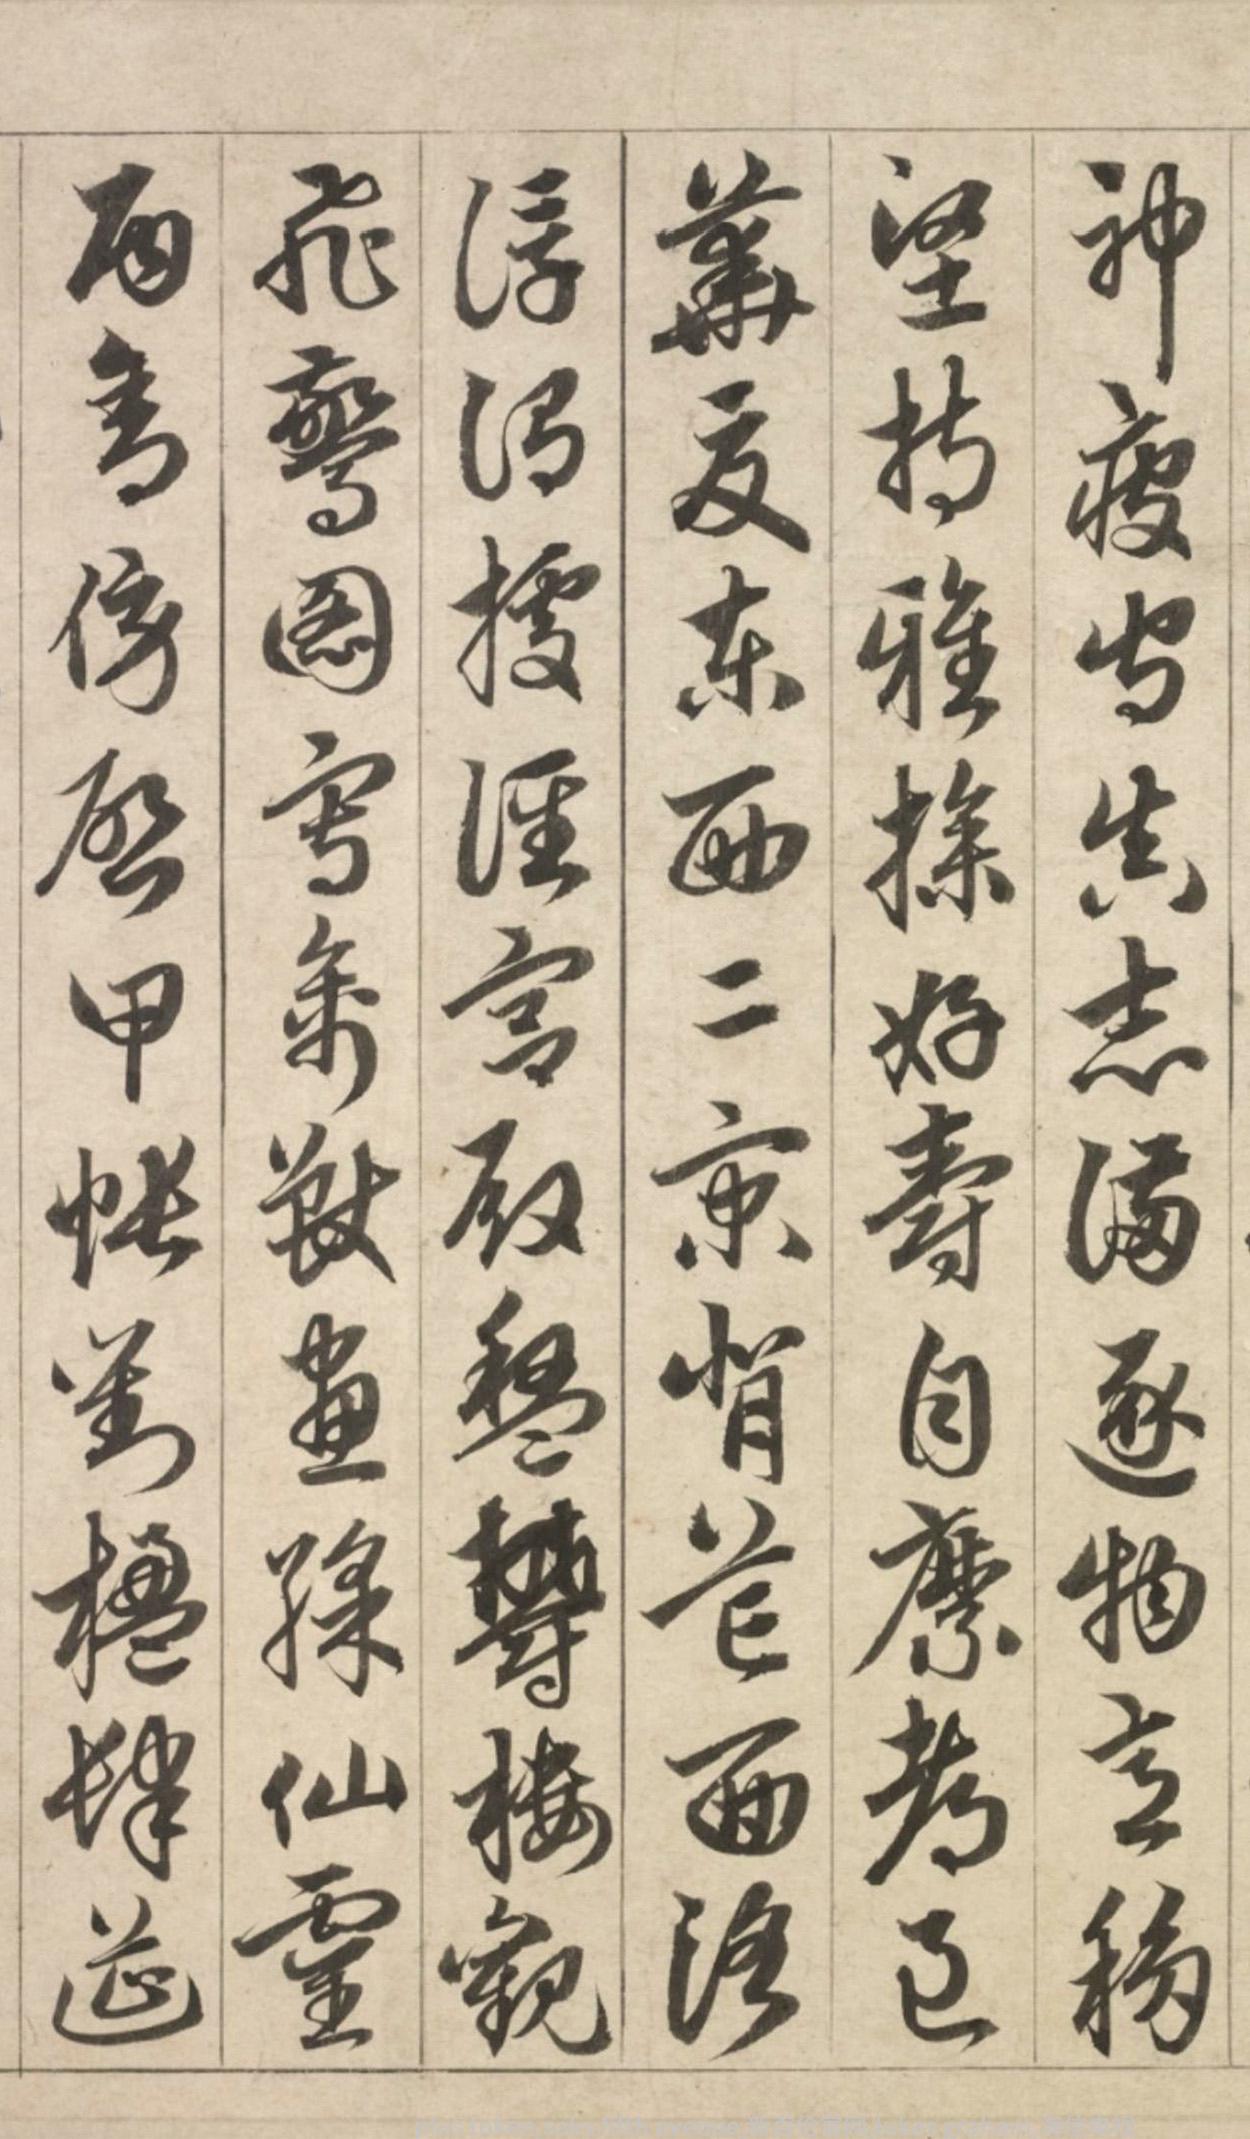 神疲守真志滿逐物意移
堅持雅操好爵自縻都邑
華夏東西二京背芒面洛
浮渭據涇宮殿盤鬱樓觀
飛驚圖寫禽獸畫綵仙靈
丙舍傍啓甲帳對楹肆筵